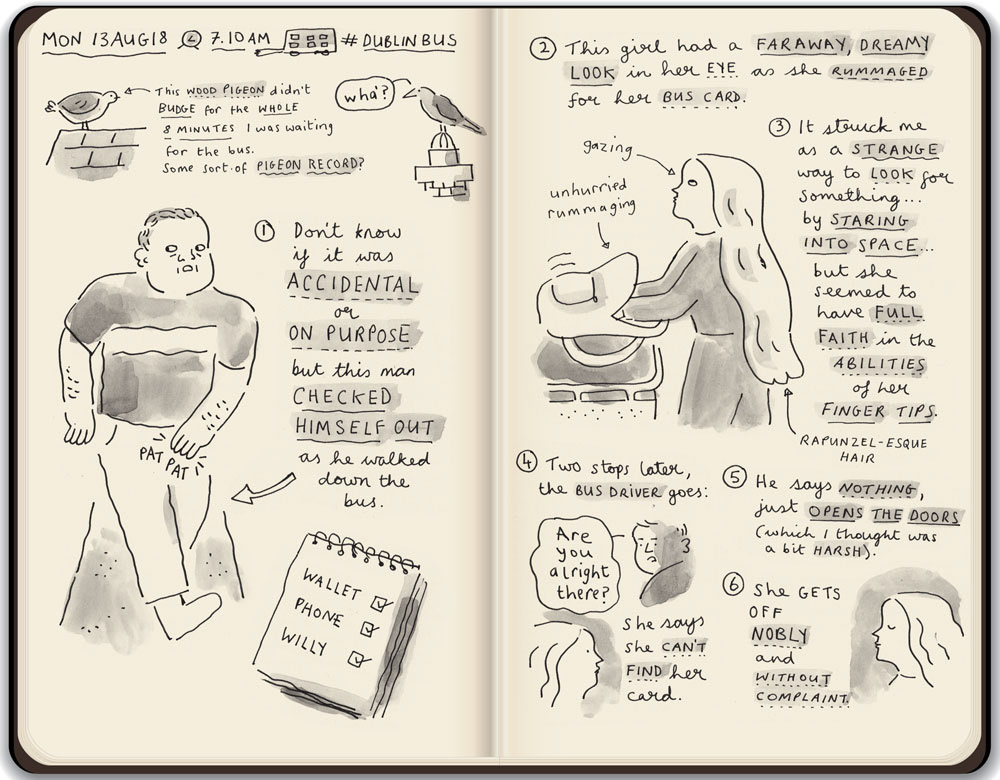 MON 13 AUG 18 7.10 AM # DUBLIN BUS
This WOOD PIGEON didn't
BUDGE for the WHOLE
8 MINUTES I was waiting
for the bus.
Some sort of PIGEON RECORD?
wha'?
1 Don't know
if it was
ACCIDENTAL
or
ON PURPOSE
but this man
CHECKED
HIMSELF OUT
as he walked
down the
bus.
PAT PAT
WALLET
PHONE
WILLY
2 This girl had a FARAWAY, DREAMY
LOOK in her EYE as she RUMMAGED
for her BUS CARD.
gazing
unhurried
rummaging
3 It struck me
as a STRANGE
way to LOOK for
something...
by STARING
INTO SPACE...
but she
seemed to
have FULL
FAITH in the
ABILITIES
of her
FINGER TIPS.
RAPUNZEL-ESQUE
HAIR
4 Two stops later,
the BUS DRIVER goes:
Are
you
alright
there?
She says
she CAN'T
FIND her
card.
5 He says NOTHING,
just OPENS THE DOORS
(which I thought was
a bit HARSH).
6 She GETS
OFF
NOBLY
and
WITHOUT
COMPLAINT.